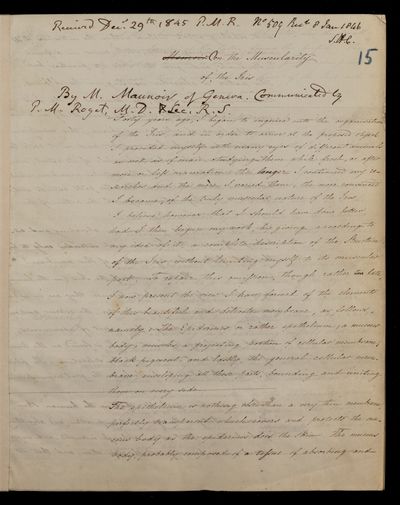 Received Dec.r 29th 1845 P.M.R. No 509 Rec.d 8 Jan 1846
S.H.C.
15
Memoir On the Muscularity
of the Iris
By M. Maunoir of Geneva. Communicated by
P. M. Roget, M.D. Sec. R.S.
Forty years ago, I began to enquire into the organization
of the Iris, and in order to arrive at the proposed object
I provided myself with many eyes of different animals
as well as of man studying them while fresh, or after
more or less maceration. the longer I continued my re-
searches and the more I varied them, the more convinced
I became of the truly muscular nature of the Iris.
I believe however that I should have done better
had I then begun my work by giving according to
my idea of it, a complete dissection of the Structure
of the Iris without limiting myself to its muscular
part. To repair this omission, though rather late,
I now present the view I have formed of the elements
of this beautiful and delicate membrane, as follows,
namely, The Epidermis or rather epithelium, a mucous
body, muscles, a projecting portion of cellular membrane,
black pigment and lastly the general cellular mem-
brane enveloping all these parts, bounding and uniting
them on every side.
The epithelium is nothing else than a very thin membrane,
perfectly transparent which covers and protects the mu-
cous body as the epidermis does the skin. The mucous
body, probably composed of a tissue of absorbing and